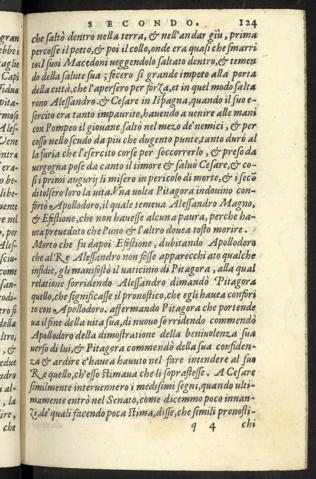 SECONDO. 124
che saltò dentro nella terra, & nell'andar giù, prima
percosse il petto, & poi il collo, onde era quasi che smarri
to. I suoi Macedoni veggendolo saltato dentro, & temen
do della salute sua; fecero sì grande impeto alla porta
della città, che l'apersero per forza, et in quel modo salta
rono Alessandro & Cesare in Ispagna, quando il suo e-
sercito era tanto impaurito, havendo a venire alle mani
con Pompeo il giovane saltò nel mezo de' nemici, & per
cosso nello scudo da piu che dugento punte, tanto durò al
la furia che l'esercito corse per soccorrerlo, & preso da
vergogna pose da canto il timore & salvò Cesare, & co-
si i primi augurij li misero in pericolo di morte, & i secō
di tolsero loro la vita. Vna volta Pitagora indovino con-
fortò Apollodoro, il quale temeva Alessandro Magno,
& Efistione, che non havesse alcuna paura, perche ha-
veva preveduto che l'uno & l'altro dovea tosto morire.
Morto che fu dapoi Efistione, dubitando Apollodoro
che al Re Alessandro non fosse apparecchiato qualche
insidie, gli manifestò il vaticinio di Pitagora, alla qual
relatione sorridendo Alessandro dimandò Pitagora
quello, che significasse il pronostico, che egli haveva conferi
to con Apollodoro. affermando Pitagora che portende
va il fine della vita sua, di nuovo sorridendo commendò
Apollodoro della dimostratione della benivolenza sua
verso di lui, & Pitagora commendò della sua confiden-
za & ardire c'haveva havuto nel fare intendere al suo
Re quello, ch'esso stimava che li soprastesse. A Cesare
similmente intervennero i medesimi segni, quando ulti-
mamente entrò nel Senato, come dicemmo poco innan-
zi, de' quali facendo poca stima, disse, che simili pronosti-
q 4 chi